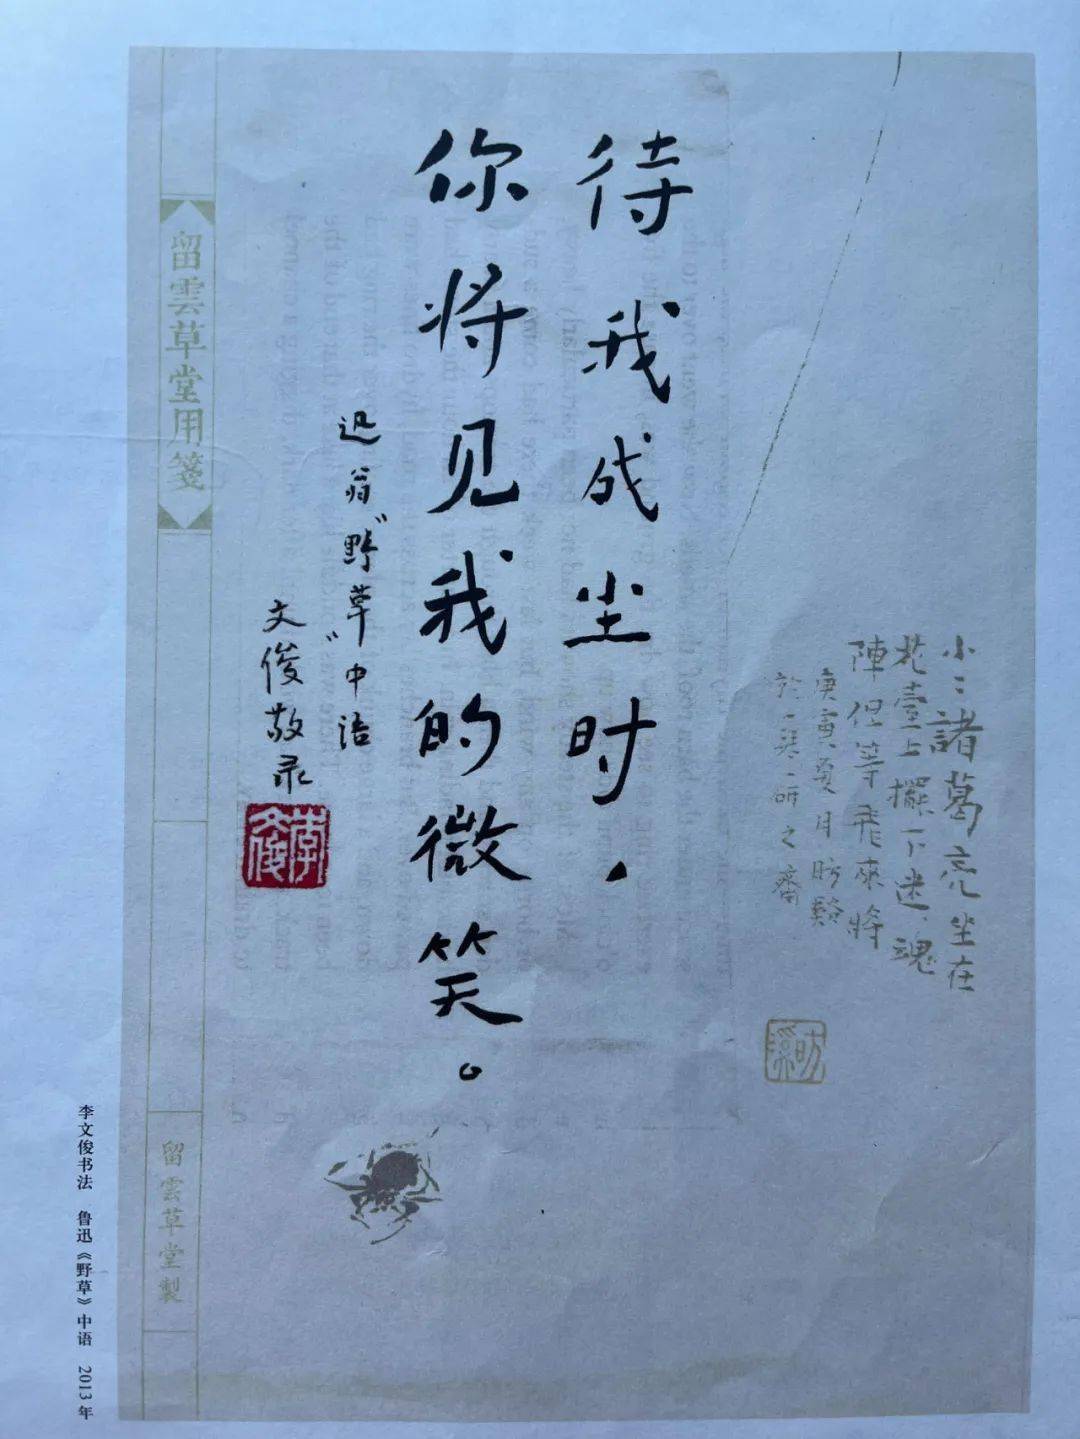 待我成尘时，
你将见我的微笑。
迅翁“野草”中语
文俊敬录
李文俊
小小諸葛亮坐在
花臺上擺下迷魂
陣但等飛來將
庚寅夏月昉谿
於一琴一研之齋
昉溪
留雲草堂用箋
留雲草堂製
李文俊书法 鲁迅《野草》中语 2013年